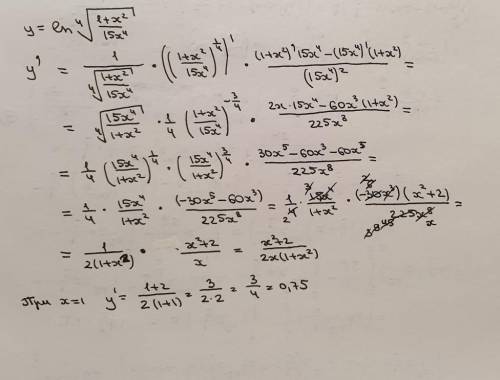 y = ln ⁴√((1+x²)/(15x⁴))
y' = 1/(⁴√((1+x²)/(15x⁴))) · (((1+x²)/(15x⁴))^(1/4))' · ((1+x²)'15x⁴-(15x⁴)'(1+x²))/((15x⁴)²) =
= ⁴√((15x⁴)/(1+x²)) · 1/4 ((1+x²)/(15x⁴))^(-3/4) · (2x·15x⁴-60x³(1+x²))/(225x⁸) =
= 1/4 ((15x⁴)/(1+x²))^(1/4) · ((15x⁴)/(1+x²))^(3/4) · (30x⁵-60x³-60x⁵)/(225x⁸) =
= 1/4 · (15x⁴)/(1+x²) · (-30x⁵-60x³)/(225x⁸) = 1/4 · (15x⁴)/(1+x²) · ((-30x³)(x²+2))/(225x⁸) =
= 1/(2(1+x²)) · · (x²+2)/x = (x²+2)/(2x(1+x²))
При x=1 y' = (1+2)/(2(1+1)) = 3/(2·2) = 3/4 = 0,75